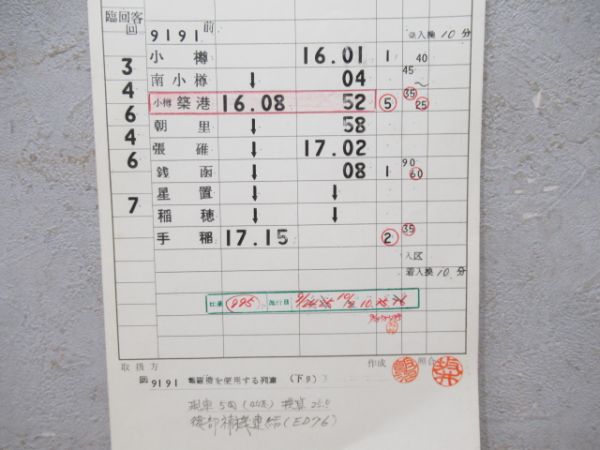 臨回客
回
9191前
※入換10分
小樽 16.01 1 40
3
南小樽 ↓ 04 45
4
小樽築港 16.08 52 5 35 25
6
朝里 ↓ 58
4
張碓 ↓ 17.02
6
銭函 ↓ 08 1 90 60
星置 ↓ ↓
7
稲穂 ↓ ↓
手稲 17.15 2 35
入区
着入換10分
995
取扱方 作成 照合
9191 を使用する列車 (下り)
現車5両
後部補機連結(ED76)